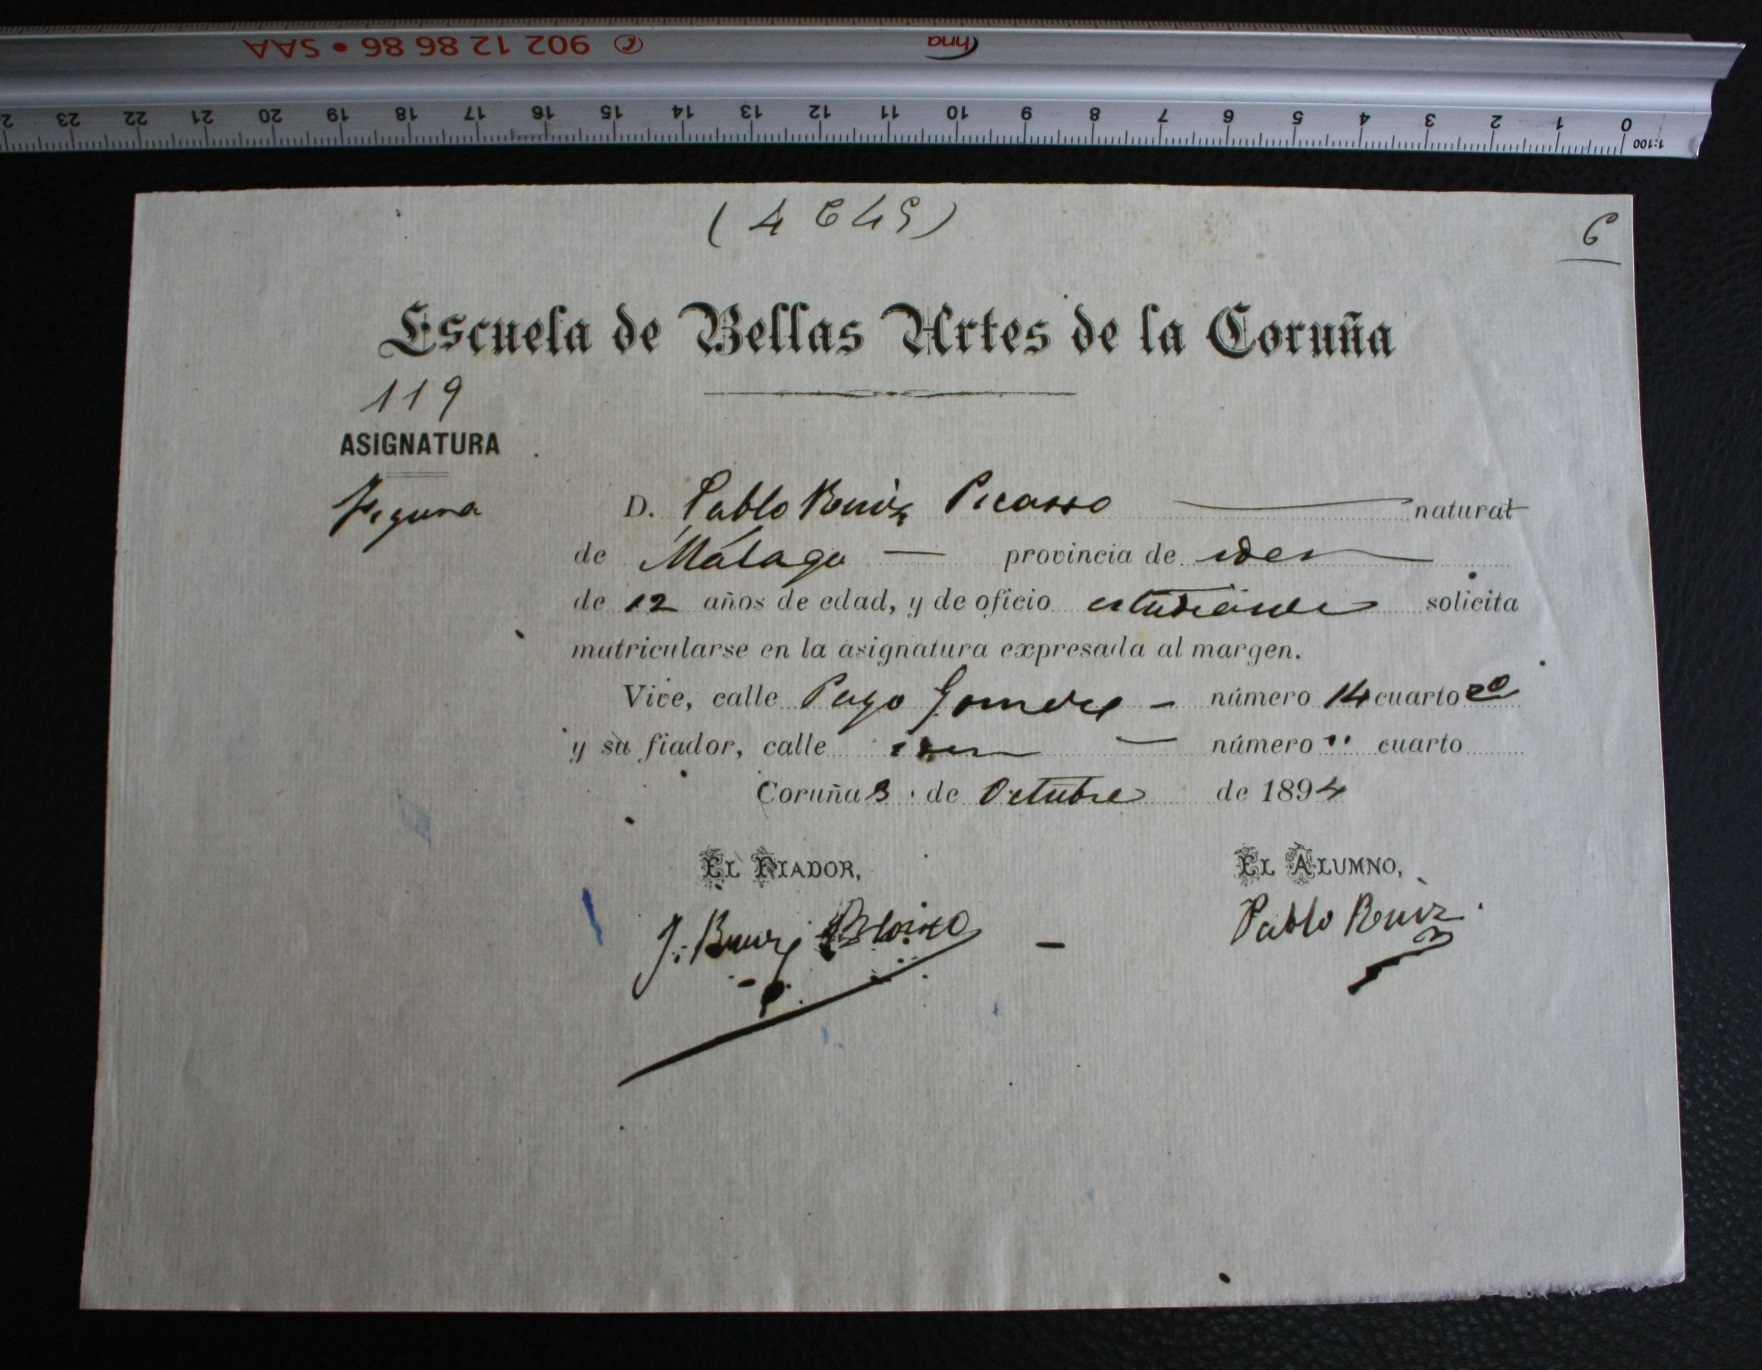 ✆ 902 12 86 86 • SAA
23 22 21 20 19 18 17 16 15 14 13 12 11 10 9 8 7 6 5 4 3 2 1 0 1:100
6
Escuela de Bellas Artes de la Coruña
119
ASIGNATURA
Figura
D. Pablo Ruiz Picasso natural
de Málaga — provincia de idem
de 12 años de edad, y de oficio estudiante solicita
matricularse en la asignatura expresada al margen.
Vive, calle Payo Gomez - número 14 cuarto 2º
y su fiador, calle idem — número " cuarto
Coruña 3 de Octubre de 1894
EL FIADOR, EL ALUMNO,
J. Ruiz Blasco - Pablo Ruiz